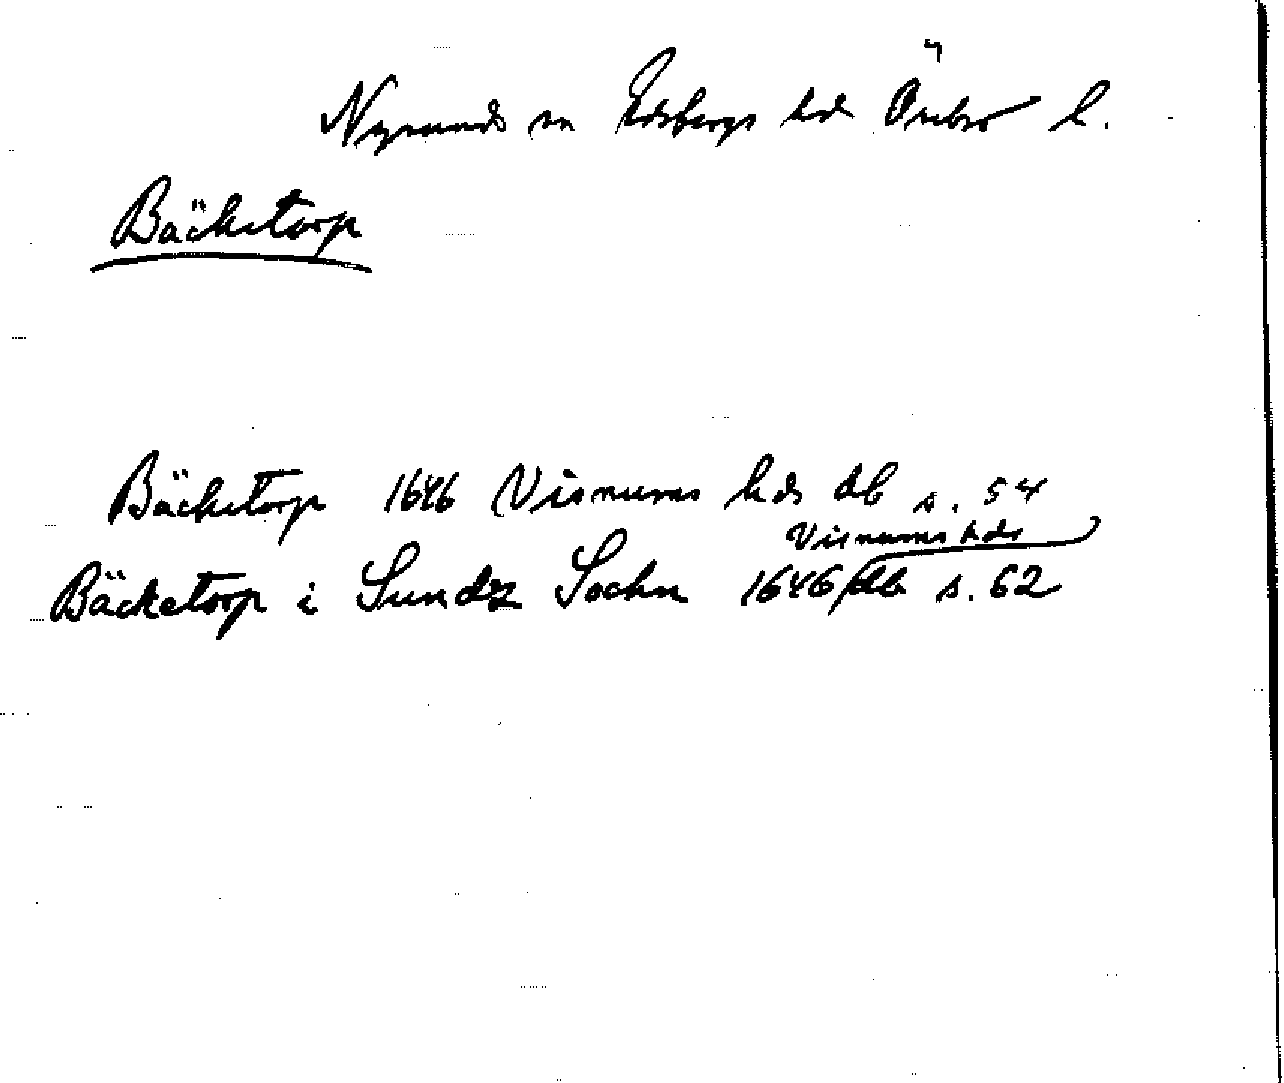 Nysunds sn Edsbergs hd Örebro l.
Bäcketorp
Bäcketorp 1646 Visnums hds db s. 54
Visnums hds
Bäcketorp i Sundz Sochn 1646 db s. 62